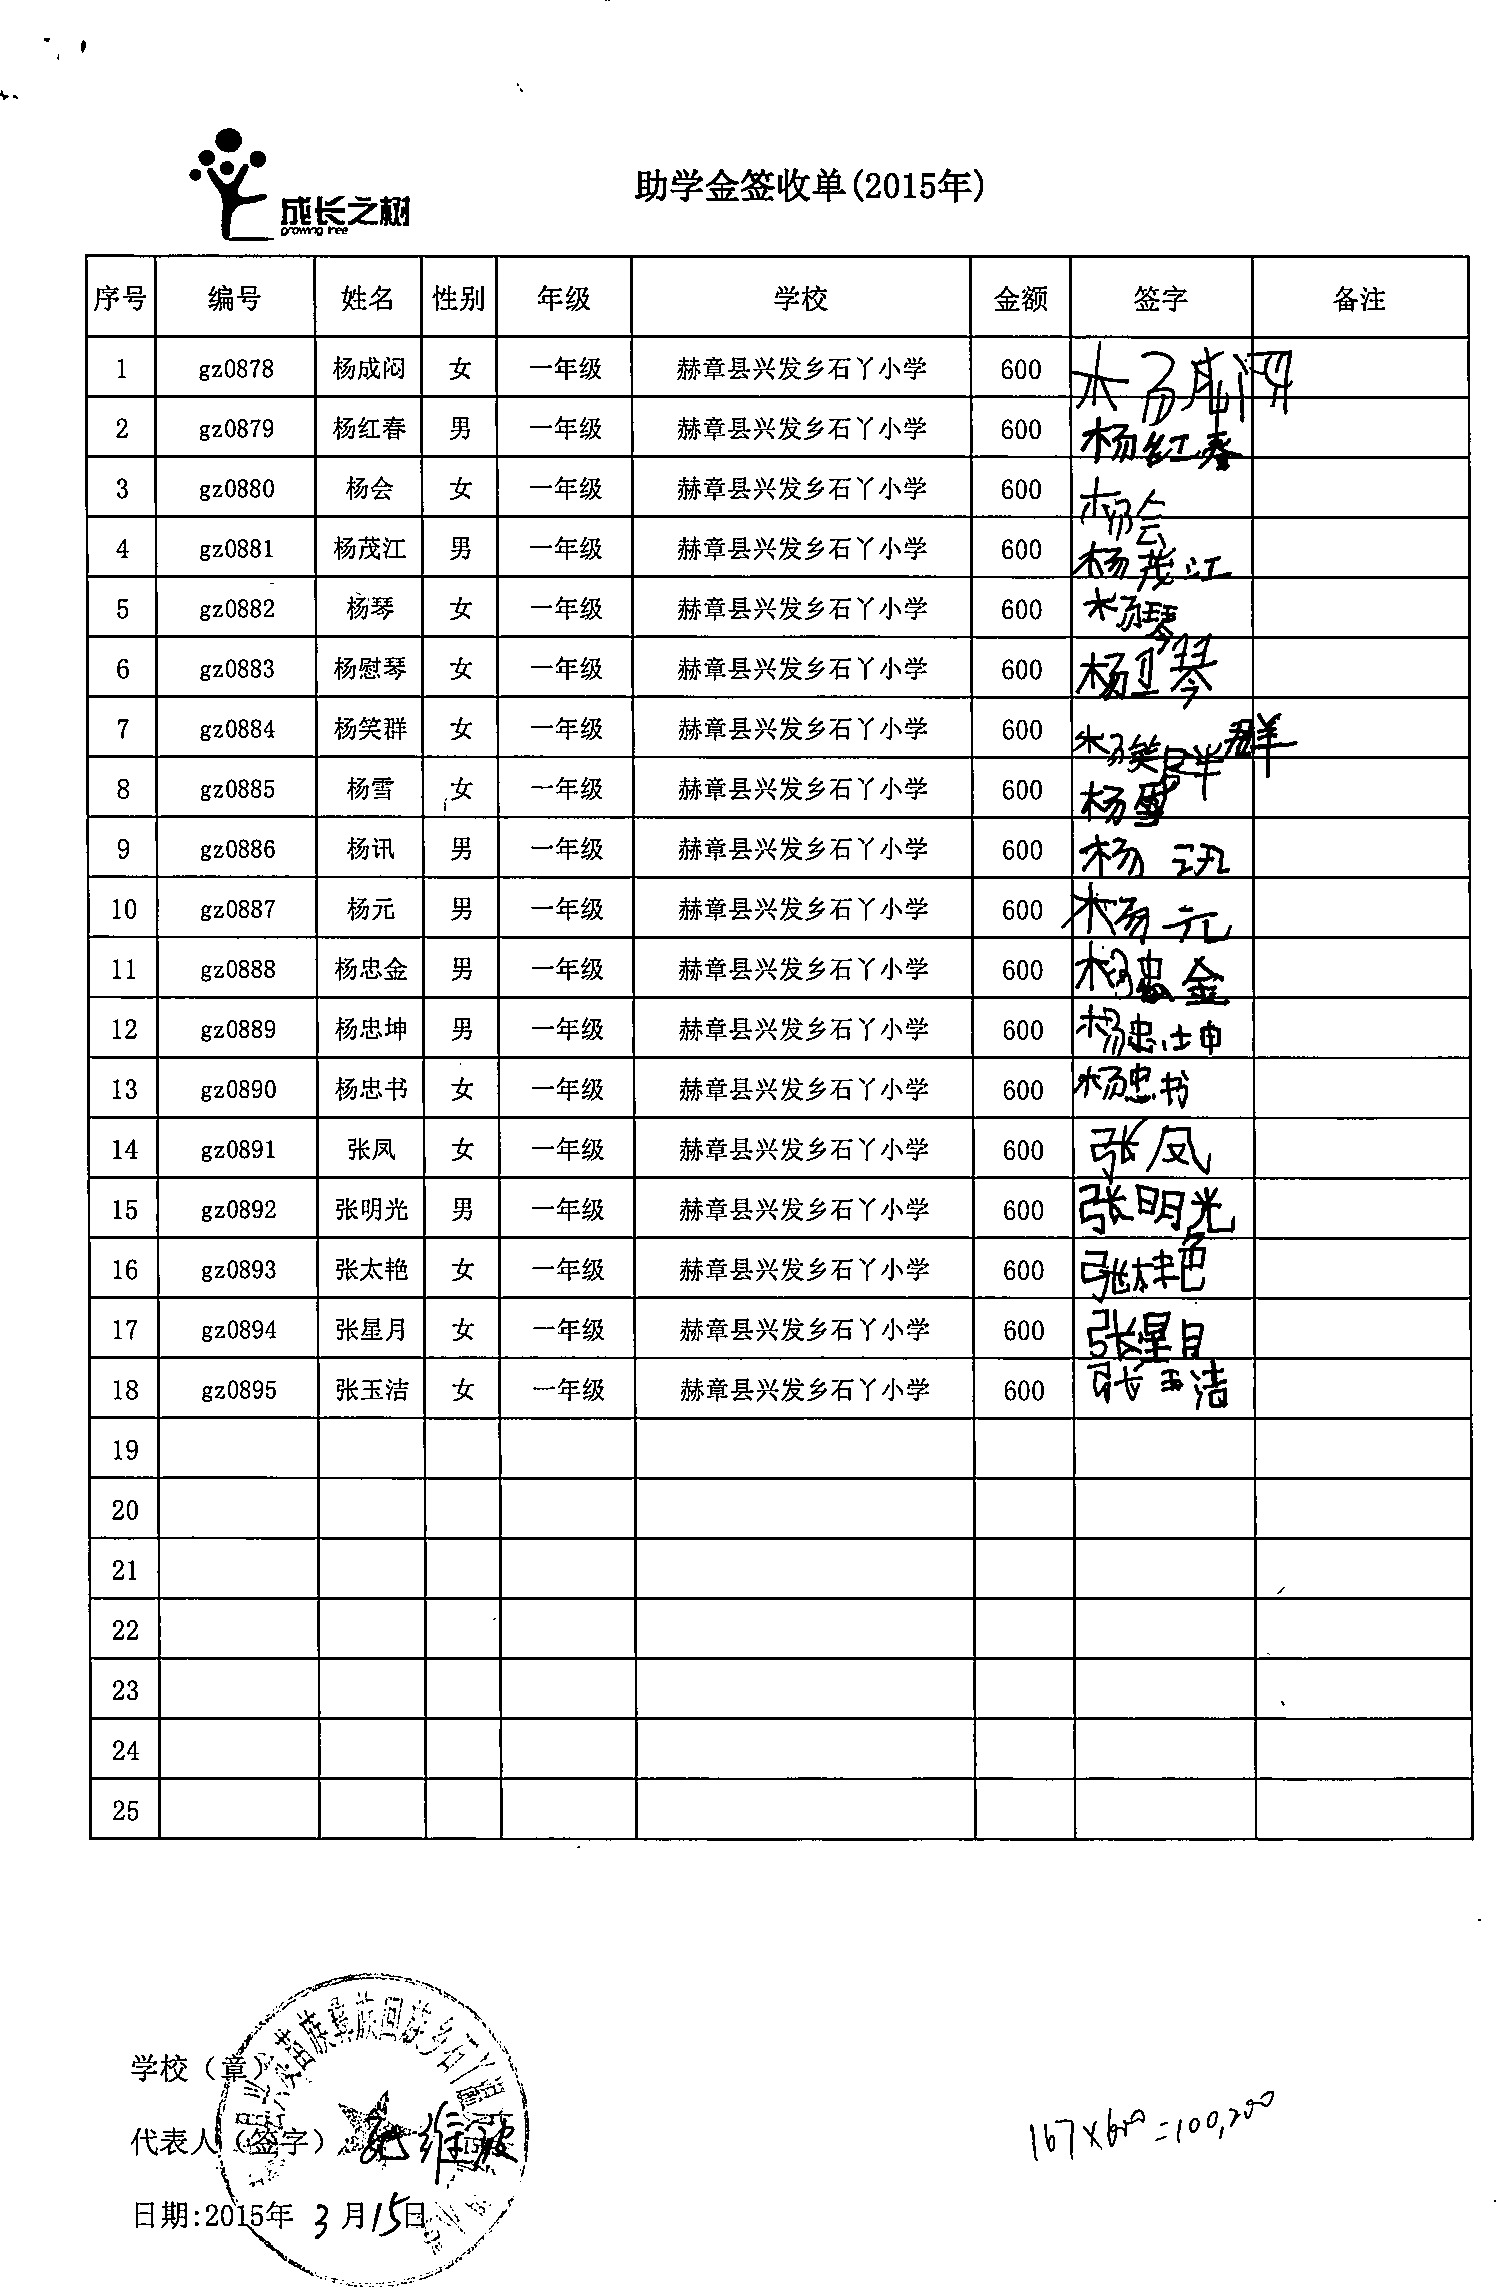 成长之树
growing tree
助学金签收单(2015年)
序号 编号 姓名 性别 年级 学校 金额 签字 备注
1 gz0878 杨成闷 女 一年级 赫章县兴发乡石丫小学 600 杨成闷
2 gz0879 杨红春 男 一年级 赫章县兴发乡石丫小学 600 杨红春
3 gz0880 杨会 女 一年级 赫章县兴发乡石丫小学 600 杨会
4 gz0881 杨茂江 男 一年级 赫章县兴发乡石丫小学 600 杨茂江
5 gz0882 杨琴 女 一年级 赫章县兴发乡石丫小学 600 杨琴
6 gz0883 杨慰琴 女 一年级 赫章县兴发乡石丫小学 600 杨卫琴
7 gz0884 杨笑群 女 一年级 赫章县兴发乡石丫小学 600 杨笑群 群
8 gz0885 杨雪 女 一年级 赫章县兴发乡石丫小学 600 杨雪
9 gz0886 杨讯 男 一年级 赫章县兴发乡石丫小学 600 杨讯
10 gz0887 杨元 男 一年级 赫章县兴发乡石丫小学 600 杨元
11 gz0888 杨忠金 男 一年级 赫章县兴发乡石丫小学 600 杨忠金
12 gz0889 杨忠坤 男 一年级 赫章县兴发乡石丫小学 600 杨忠坤
13 gz0890 杨忠书 女 一年级 赫章县兴发乡石丫小学 600 杨忠书
14 gz0891 张凤 女 一年级 赫章县兴发乡石丫小学 600 张凤
15 gz0892 张明光 男 一年级 赫章县兴发乡石丫小学 600 张明光
16 gz0893 张太艳 女 一年级 赫章县兴发乡石丫小学 600 张太艳
17 gz0894 张星月 女 一年级 赫章县兴发乡石丫小学 600 张星月
18 gz0895 张玉洁 女 一年级 赫章县兴发乡石丫小学 600 张玉洁
19
20
21
22
23
24
25
学校（章）
苗族彝族回族乡石丫
代表人（签字） 维波
日期:2015年 3 月 15 日
167×600=100,200